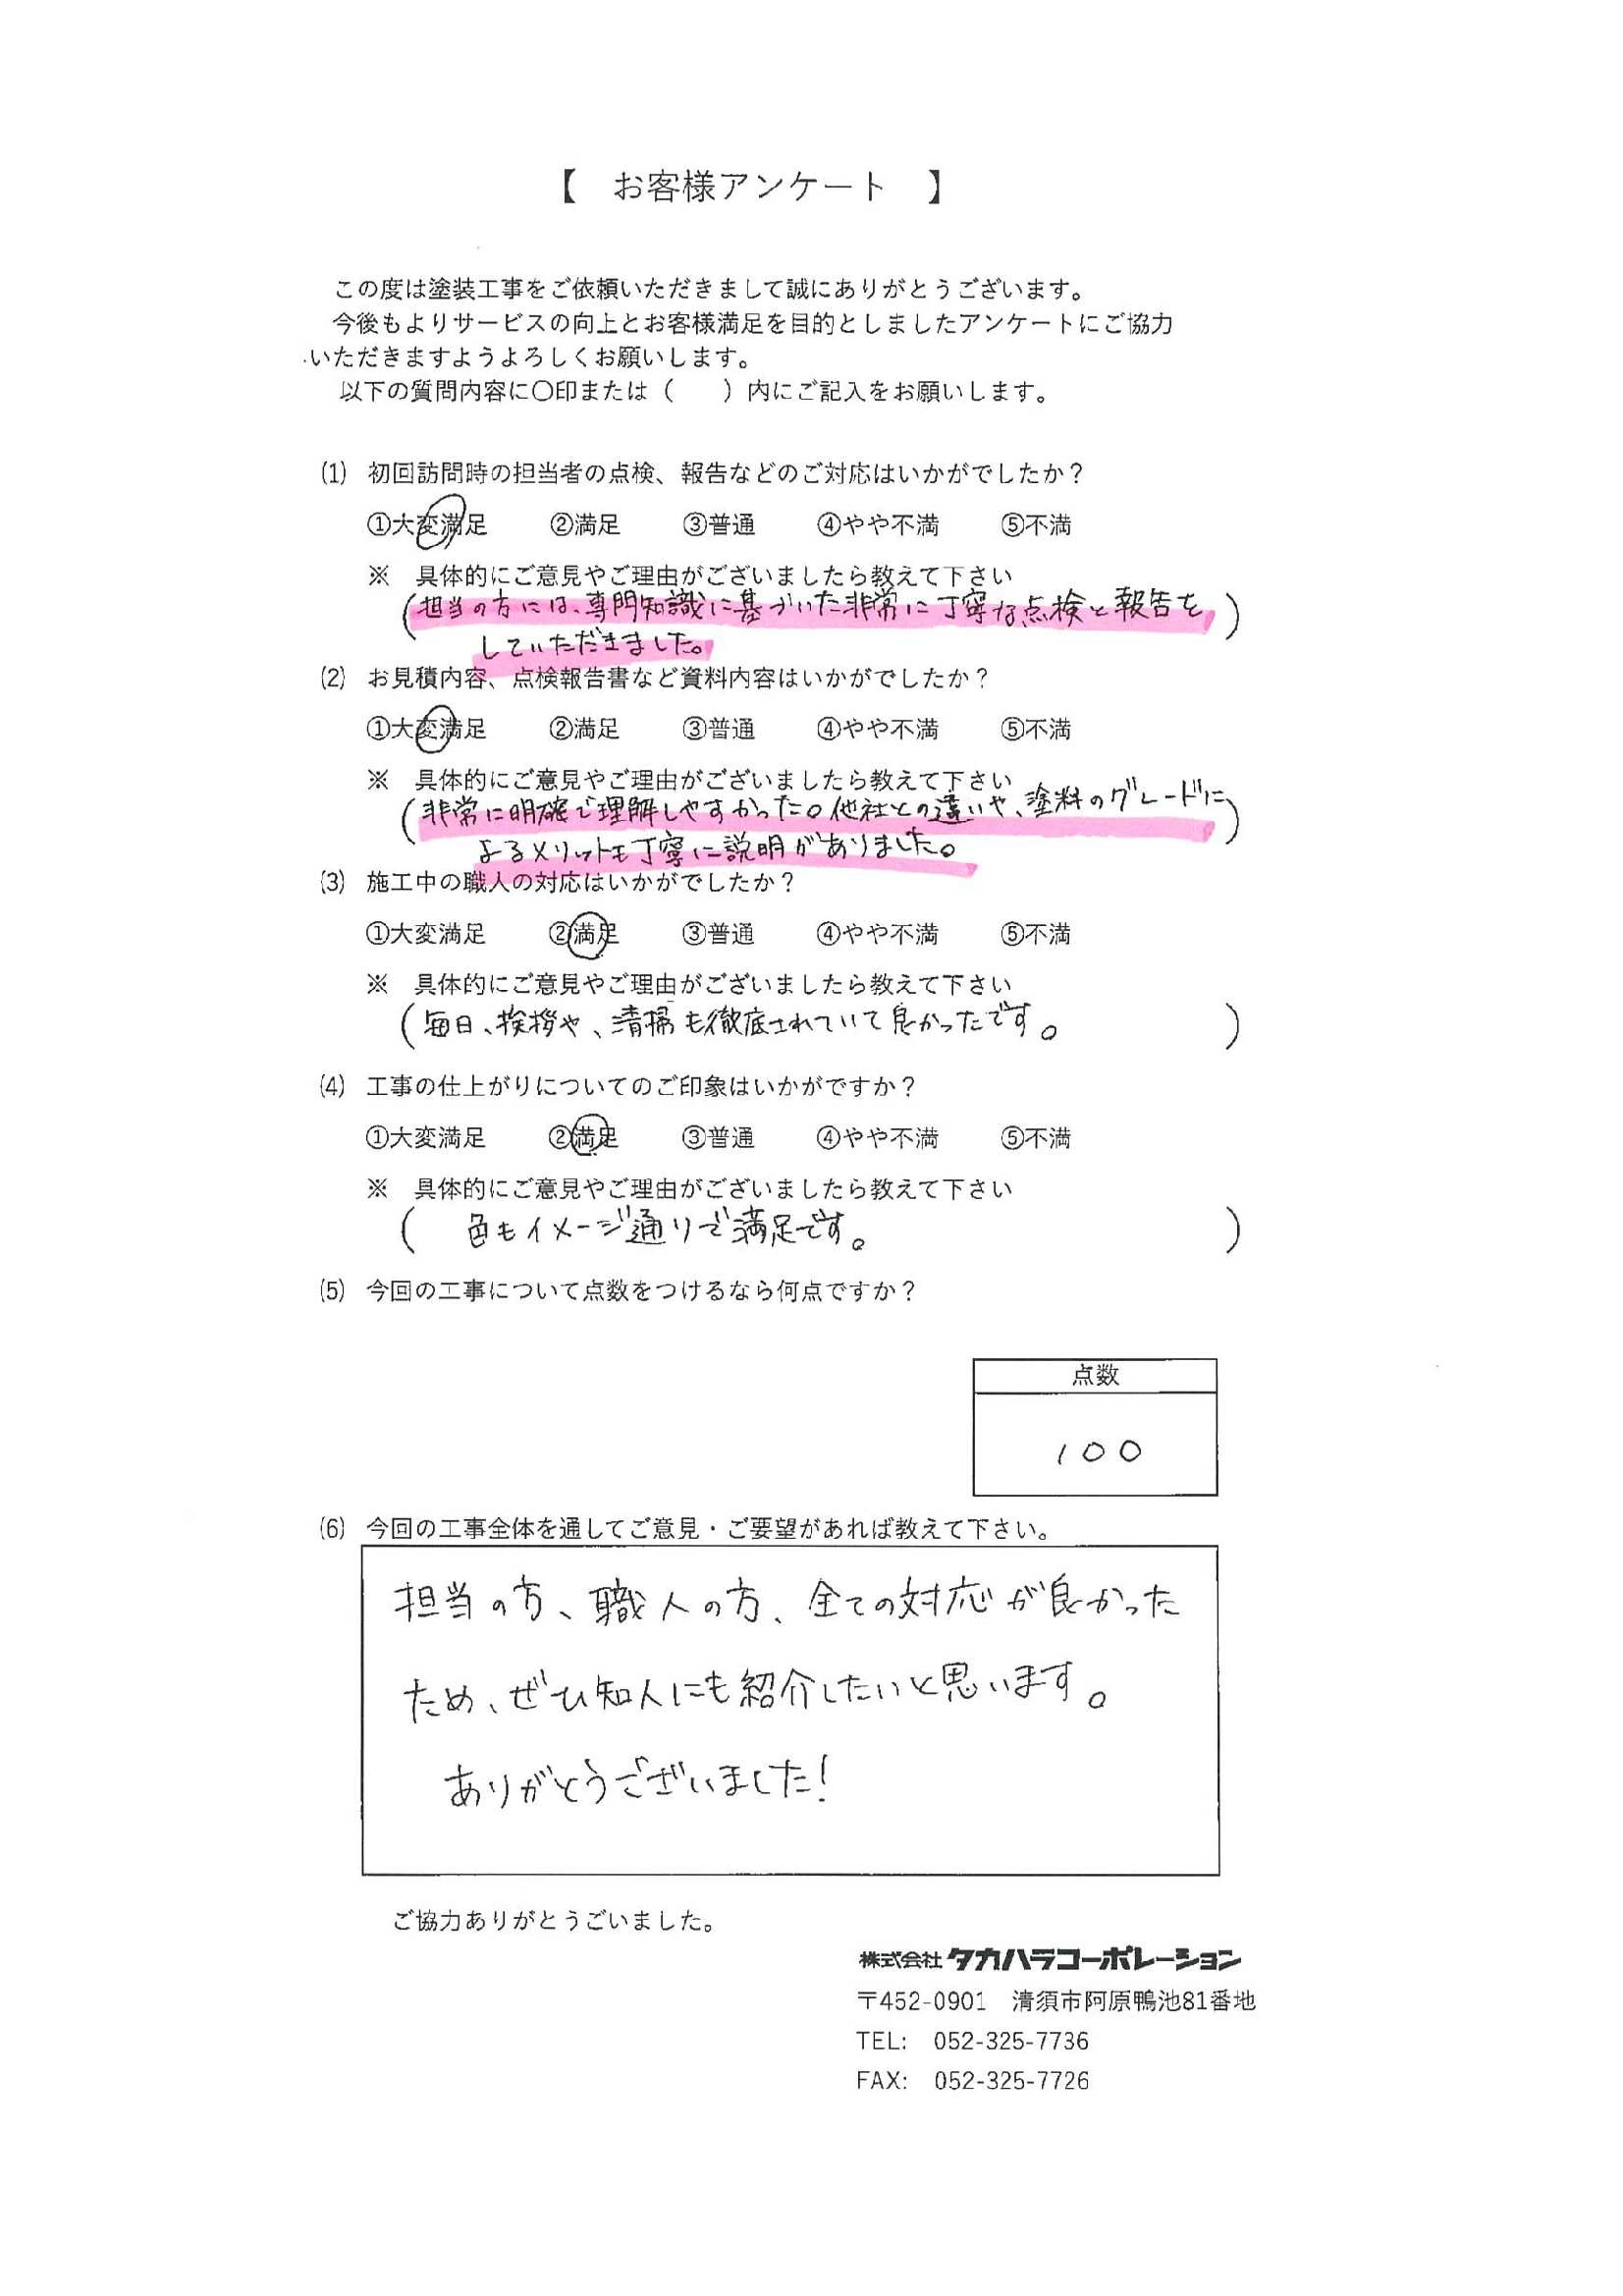 【 お客様アンケート 】
この度は塗装工事をご依頼いただきまして誠にありがとうございます。
今後もよりサービスの向上とお客様満足を目的としましたアンケートにご協力
いただきますようよろしくお願いします。
以下の質問内容に〇印または（　　）内にご記入をお願いします。
(1) 初回訪問時の担当者の点検、報告などのご対応はいかがでしたか？
①大変満足 ②満足 ③普通 ④やや不満 ⑤不満
※ 具体的にご意見やご理由がございましたら教えて下さい
(担当の方には、専門知識に基づいた非常に丁寧な点検と報告を
していただきました。)
(2) お見積内容、点検報告書など資料内容はいかがでしたか？
①大変満足 ②満足 ③普通 ④やや不満 ⑤不満
※ 具体的にご意見やご理由がございましたら教えて下さい
(非常に明確で理解しやすかった。他社との違いや、塗料のグレードに
よるメリットも丁寧に説明がありました。)
(3) 施工中の職人の対応はいかがでしたか？
①大変満足 ②満足 ③普通 ④やや不満 ⑤不満
※ 具体的にご意見やご理由がございましたら教えて下さい
(毎日、挨拶や、清掃も徹底されていて良かったです。)
(4) 工事の仕上がりについてのご印象はいかがですか？
①大変満足 ②満足 ③普通 ④やや不満 ⑤不満
※ 具体的にご意見やご理由がございましたら教えて下さい
(色もイメージ通りで満足です。)
(5) 今回の工事について点数をつけるなら何点ですか？
点数
100
(6) 今回の工事全体を通してご意見・ご要望があれば教えて下さい。
担当の方、職人の方、全ての対応が良かった
ため、ぜひ知人にも紹介したいと思います。
ありがとうございました！
ご協力ありがとうごいました。
株式会社 タカハラコーポレーション
〒452-0901　清須市阿原鴨池81番地
TEL: 052-325-7736
FAX: 052-325-7726